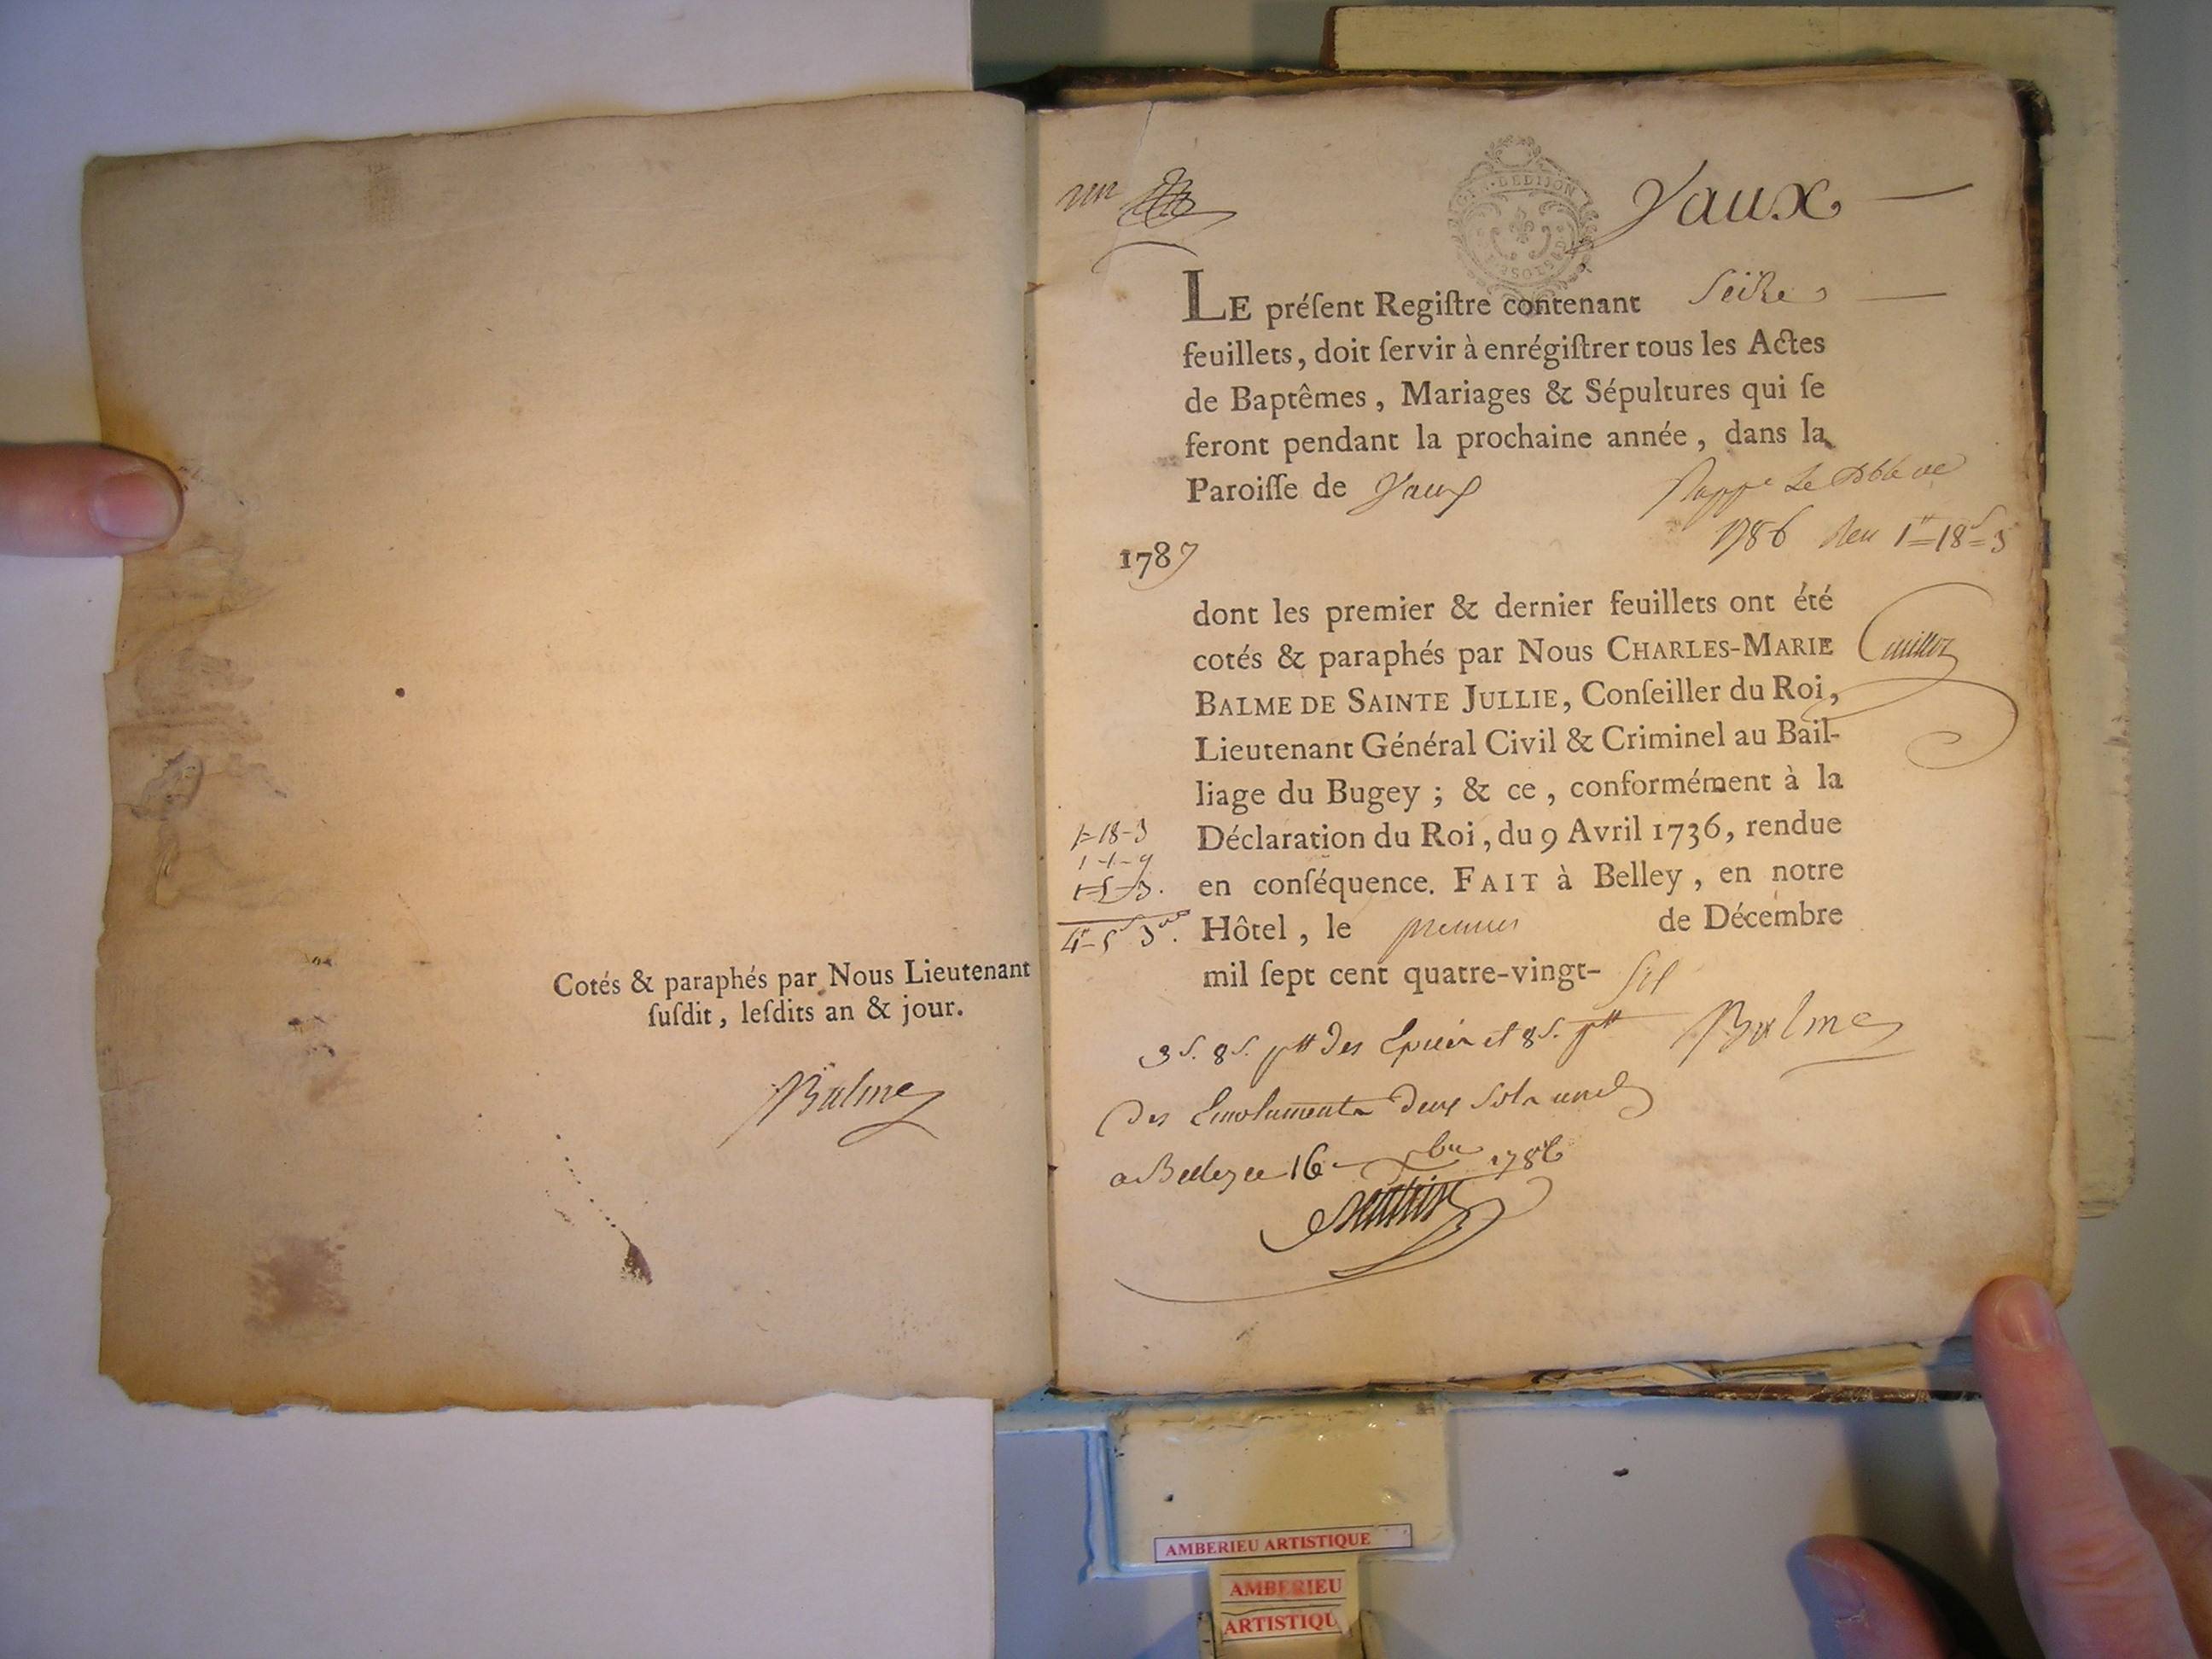 Cotés & paraphés par Nous Lieutenant
ſuſdit, leſdits an & jour.
Balme
un
Vaux
LE préſent Regiſtre contenant Seize
feuillets, doit ſervir à enrégiſtrer tous les Actes
de Baptêmes, Mariages & Sépultures qui ſe
feront pendant la prochaine année, dans la
Paroiſſe de Vaux
1786 Reu 1-18-3
1787
dont les premier & dernier feuillets ont été
cotés & paraphés par Nous CHARLES-MARIE
BALME DE SAINTE JULLIE, Conſeiller du Roi,
Lieutenant Général Civil & Criminel au Bail-
liage du Bugey ; & ce, conformément à la
Déclaration du Roi, du 9 Avril 1736, rendue
en conſéquence. FAIT à Belley, en notre
Hôtel, le premier de Décembre
mil ſept cent quatre-vingt- six
1-18-3
Balme
3 s. 8 s. des Epices et 8 s.
des Emoluments deux sols
a Belley le 16 xbre 1786
AMBERIEU ARTISTIQUE
AMBERIEU
ARTISTIQU